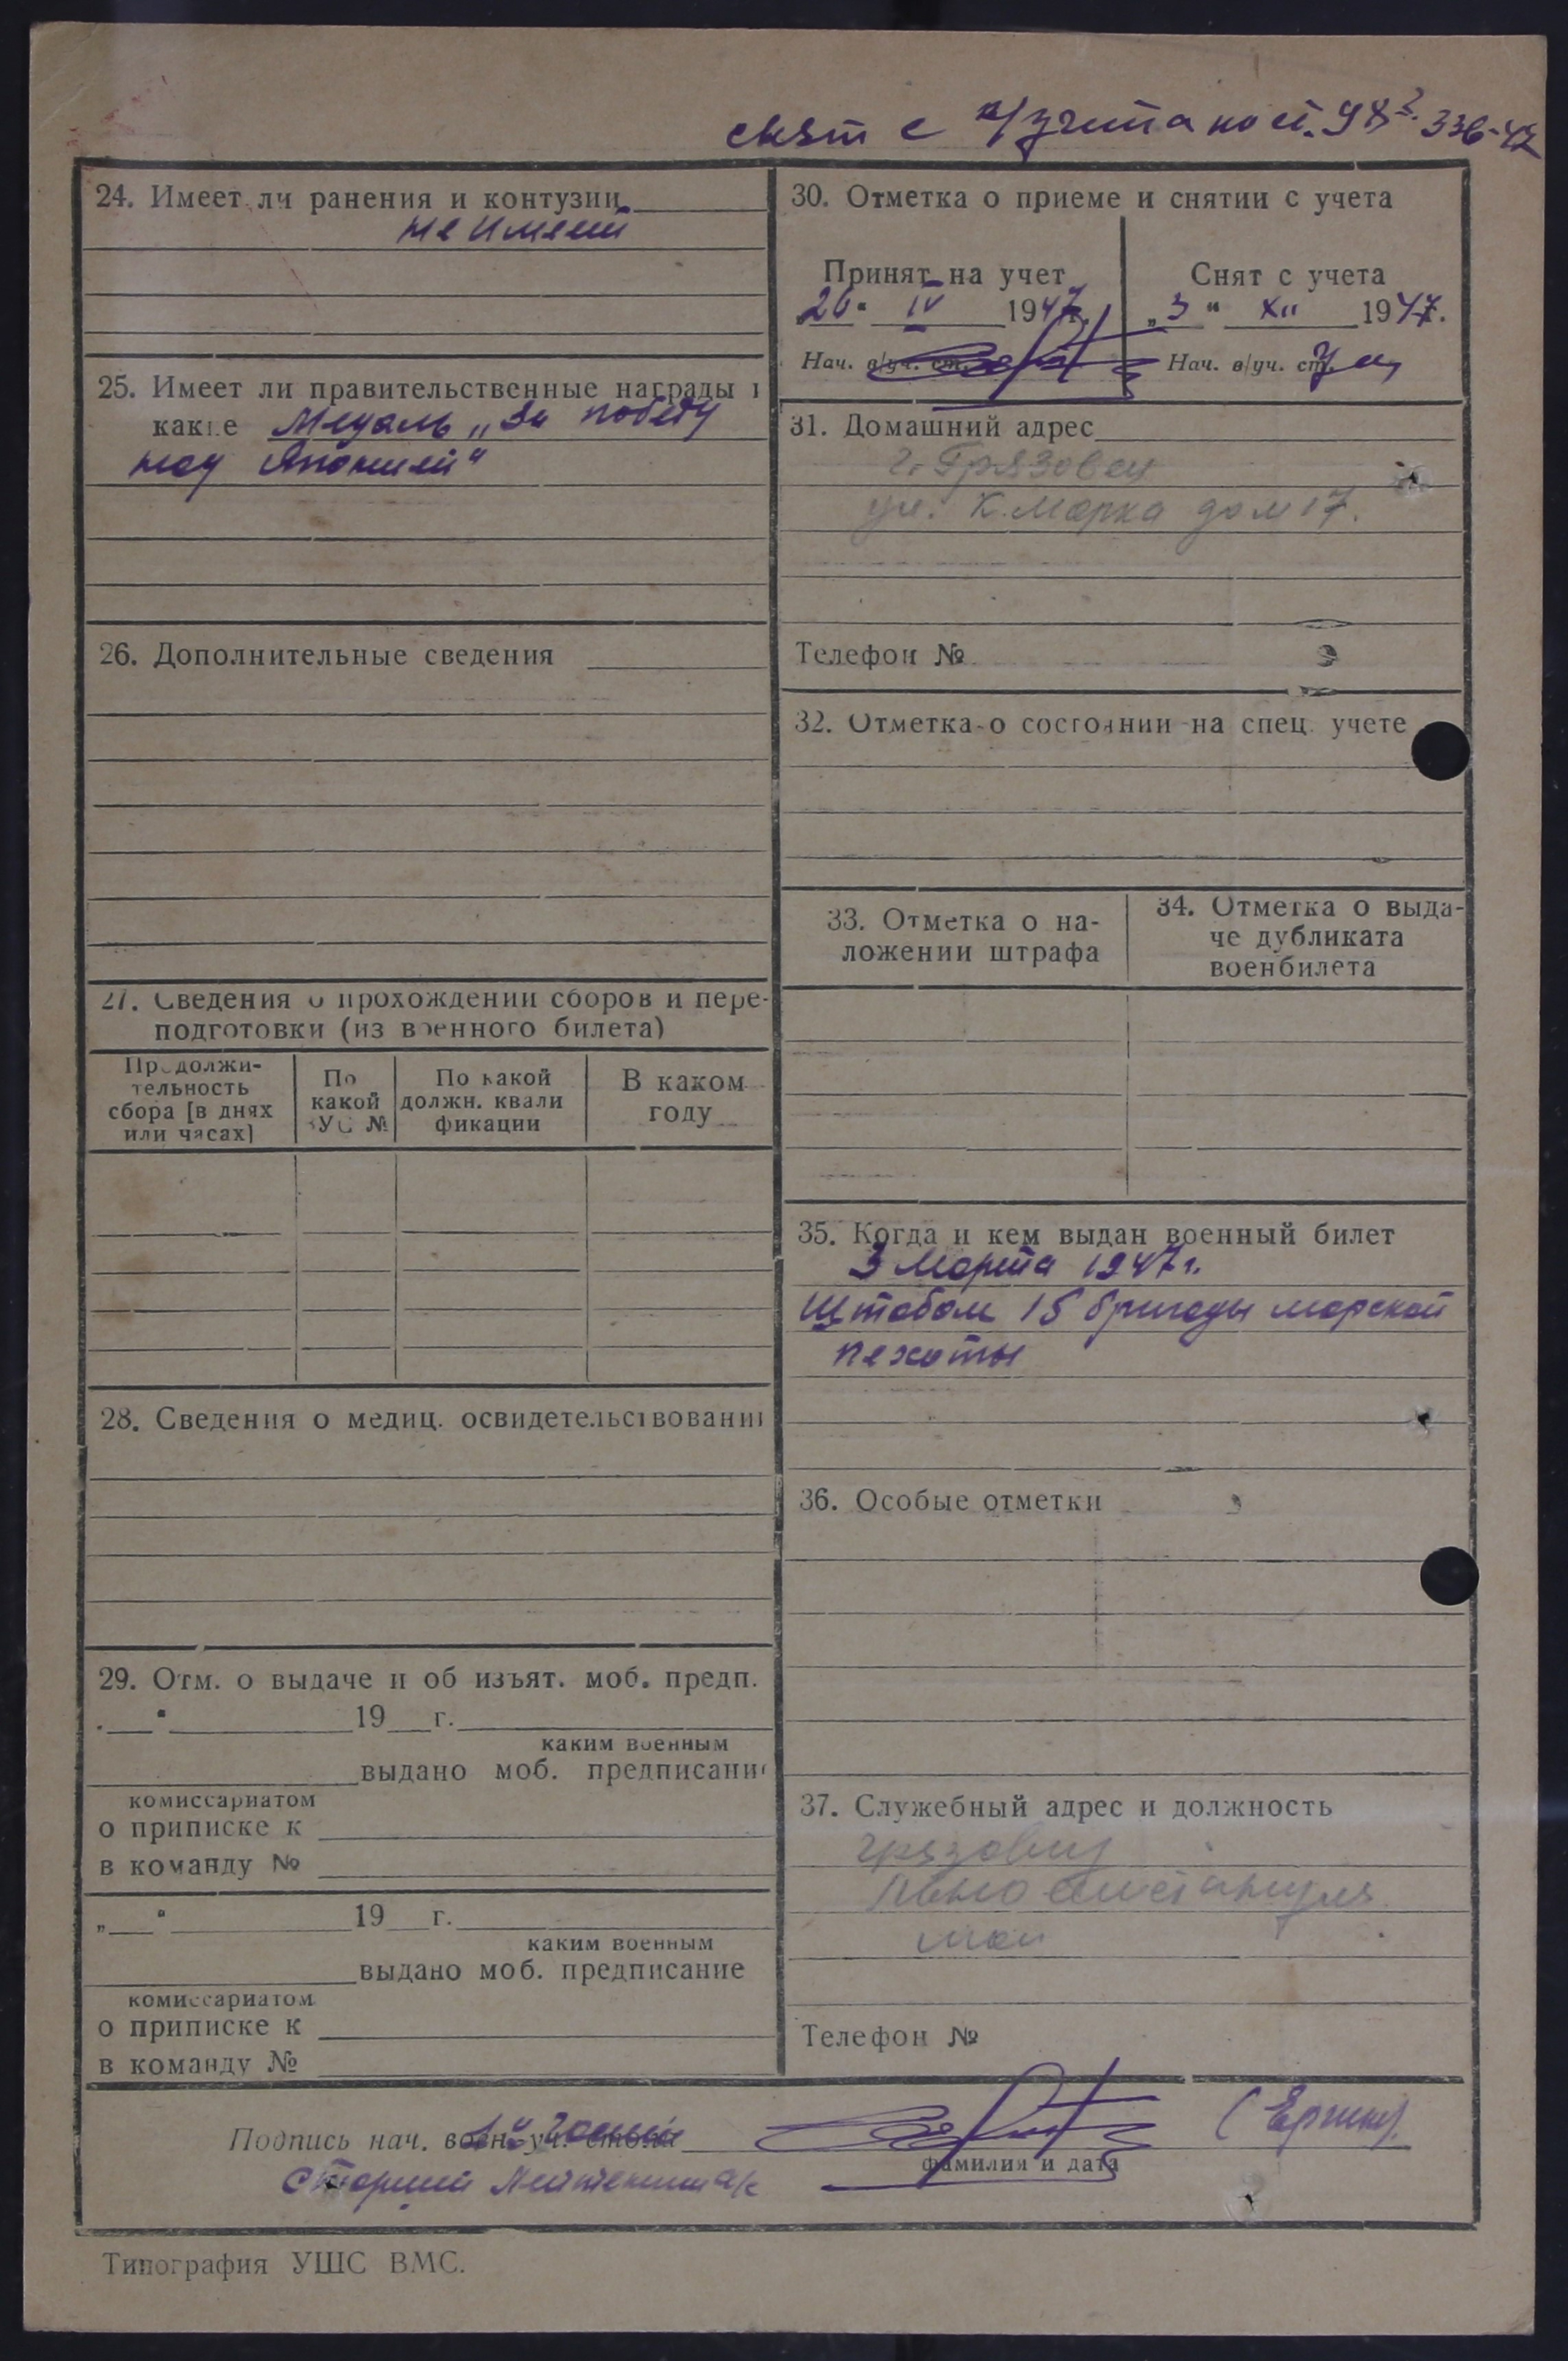 снят с в/учета по ст. 98 336-47
24. Имеет ли ранения и контузии
не имеет
25. Имеет ли правительственные награды и
какие Медаль „За победу
над Японией"
26. Дополнительные сведения
27. Сведения о прохождении сборов и пере-
подготовки (из военного билета)
Продолжи-
тельность
сбора [в днях
или часах]
По
какой
ВУС №
По какой
должн. квали
фикации
В каком
году
28. Сведения о медиц. освидетельствовании
29. Отм. о выдаче и об изъят. моб. предп.
19 г.
каким военным
выдано моб. предписание
комиссариатом
о приписке к
в команду №
„ " 19 г.
каким военным
выдано моб. предписание
комиссариатом
о приписке к
в команду №
30. Отметка о приеме и снятии с учета
Принят на учет
„20" IV 1947г.
Нач. в/уч. ст.
Снят с учета
„3" XII 1947.
Нач. в/уч. ст.
31. Домашний адрес
г. Грязовец
ул. К. Маркса дом 17.
Телефон №
32. Отметка о состоянии на спец. учете
33. Отметка о на-
ложении штрафа
34. Отметка о выда-
че дубликата
военбилета
35. Когда и кем выдан военный билет
3 Марта 1947г.
Штабом 15 бригады морской
пехоты
36. Особые отметки
37. Служебный адрес и должность
Грязовец
Телефон №
Подпись нач. воен. уч. стола
(Ергин).
фамилия и дата
Старший Лейтенант а/с
Типография УШС ВМС.